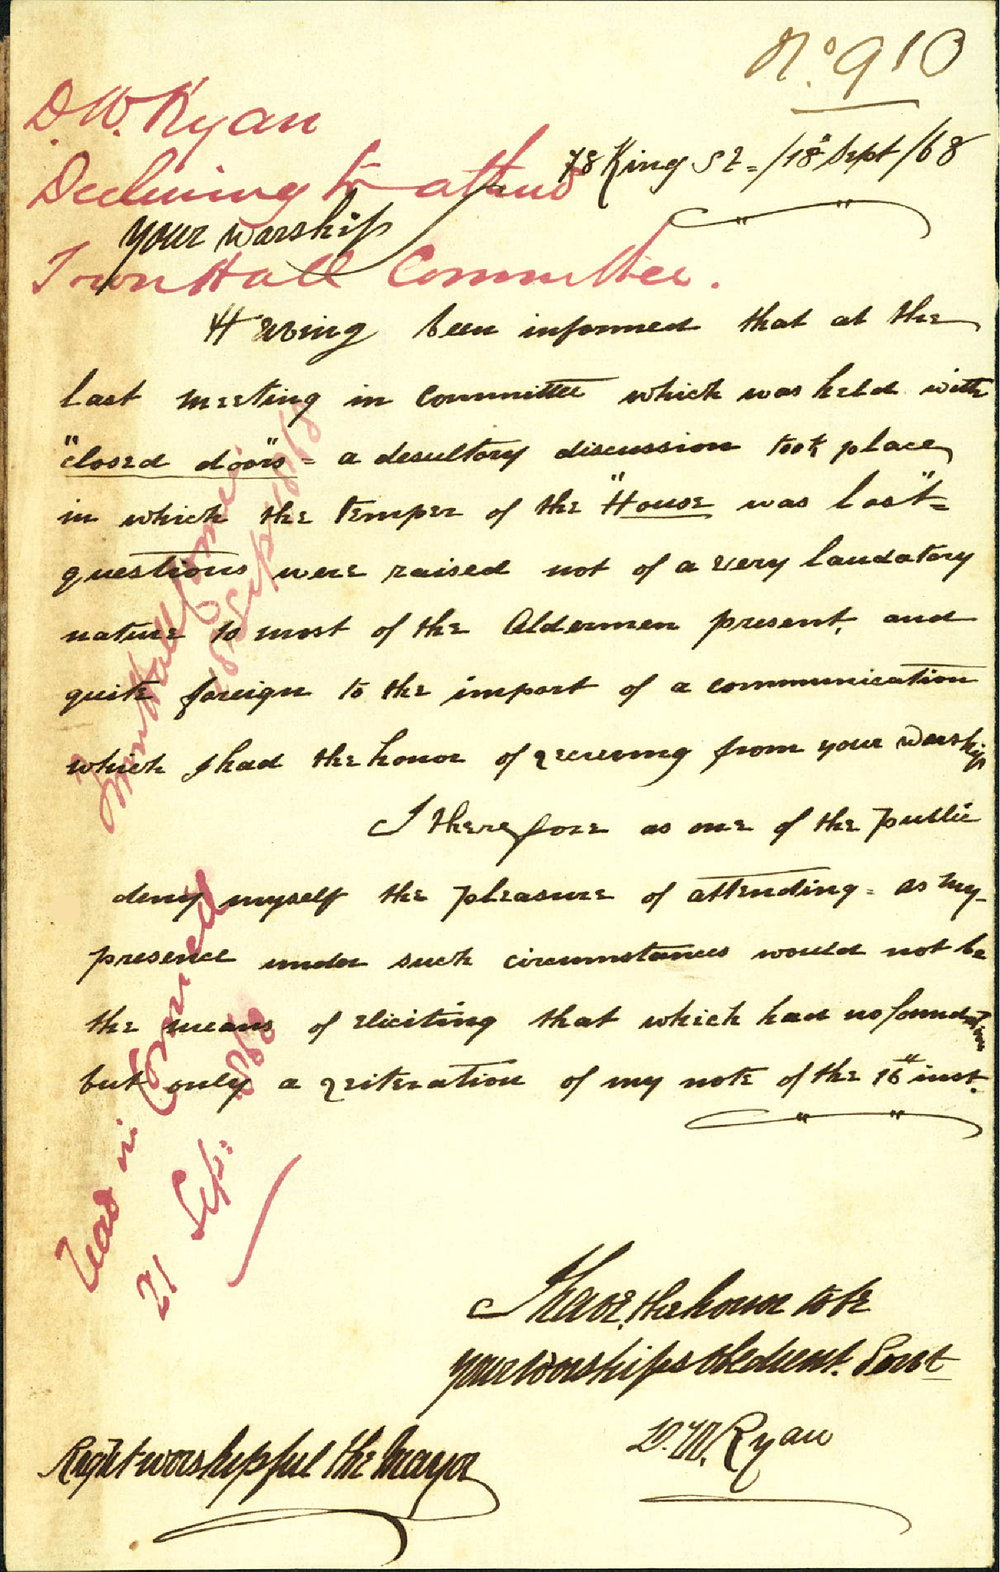 No. 910
D. W. Ryan
Declining to attend
Town Hall Committee.
78 King St. /18th Sept/68
your worship
Having been informed that at the
last meeting in Committee which was held with
"closed doors" = a desultory discussion took place
in which the temper of the "House" was lost =
questions were raised not of a very laudatory
nature to most of the Aldermen present, and
quite foreign to the import of a communication
which I had the honor of receiving from your worship
I therefore as one of the public
deny myself the pleasure of attending = as my
presence under such circumstances would not be
the means of eliciting that which had no foundation
but only a reiteration of my note of the 16th inst.
I have the honor to be
your worships obedient Servt
D. W. Ryan
Right worshipful the Mayor
Town Hall Commee.
18 Sepr 1868
Read in Council
21 Sep: 1868